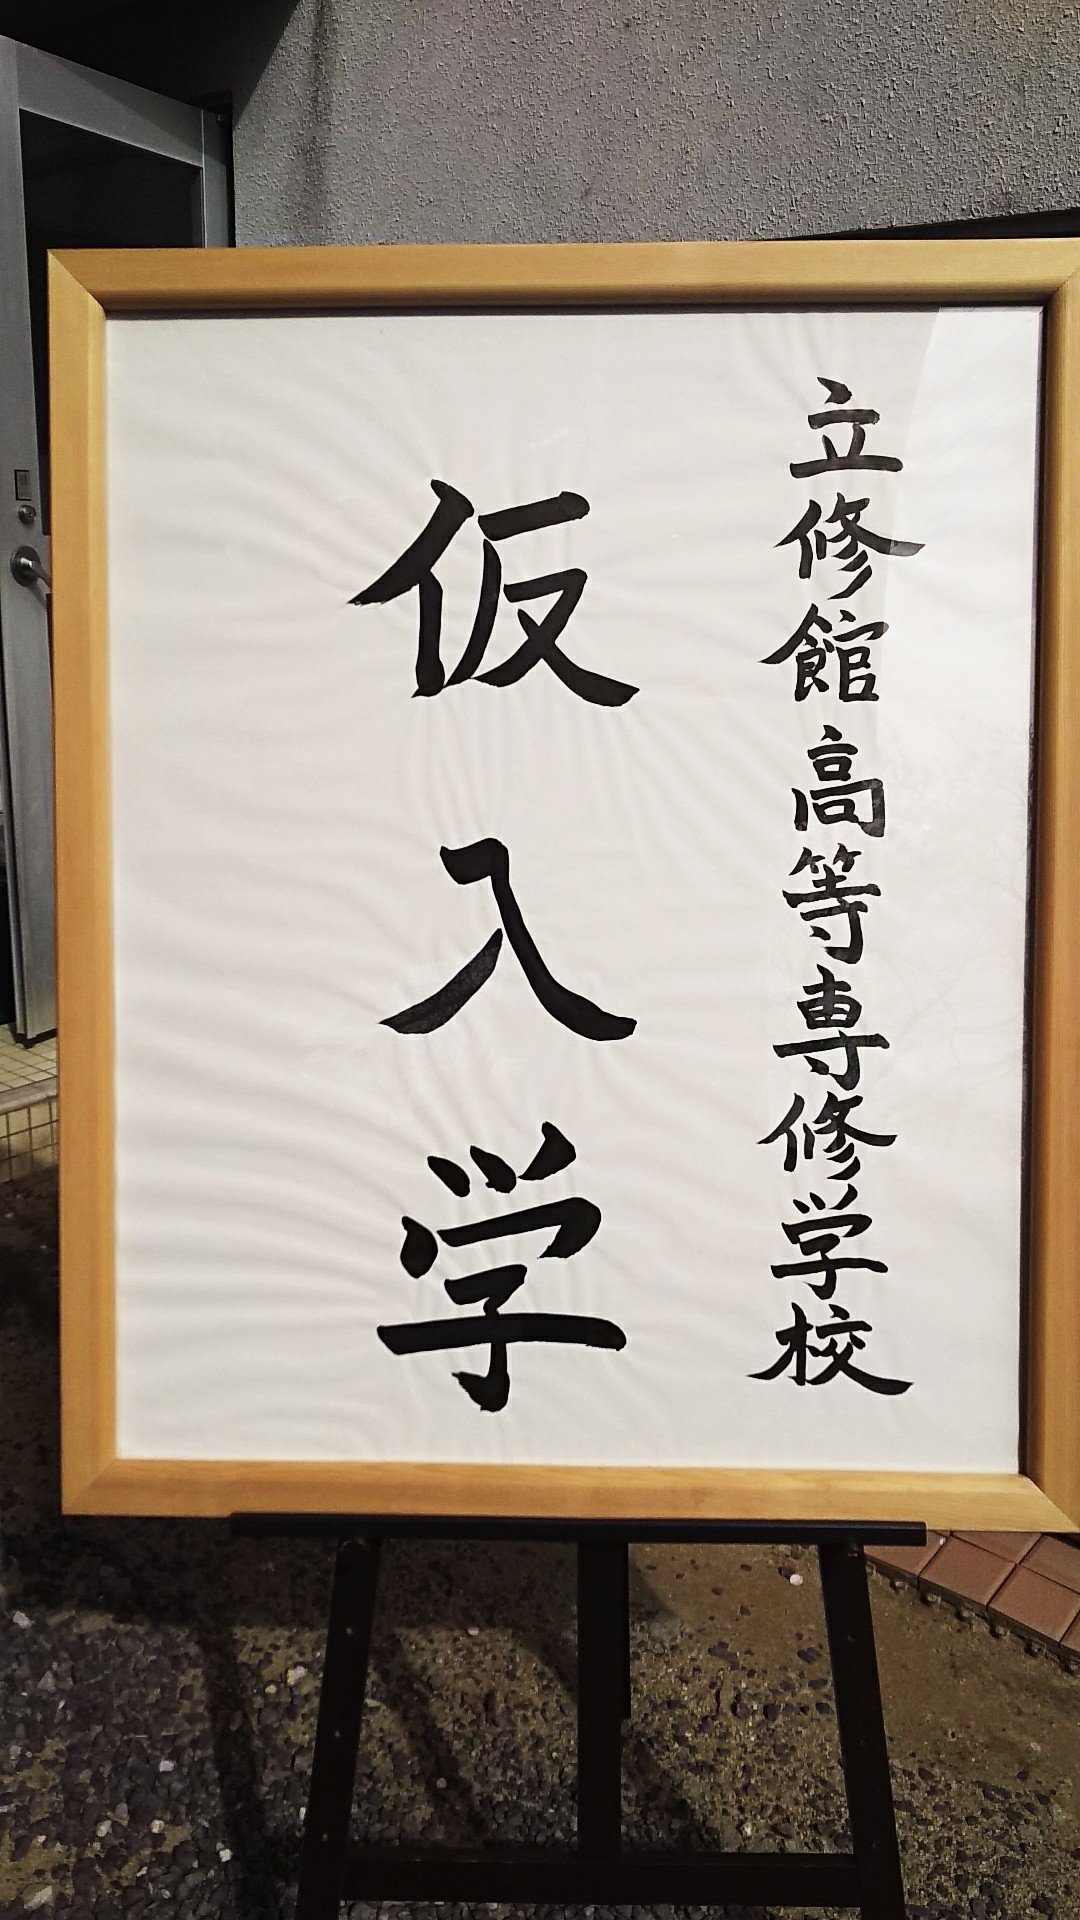 立修館高等専修学校
仮入学